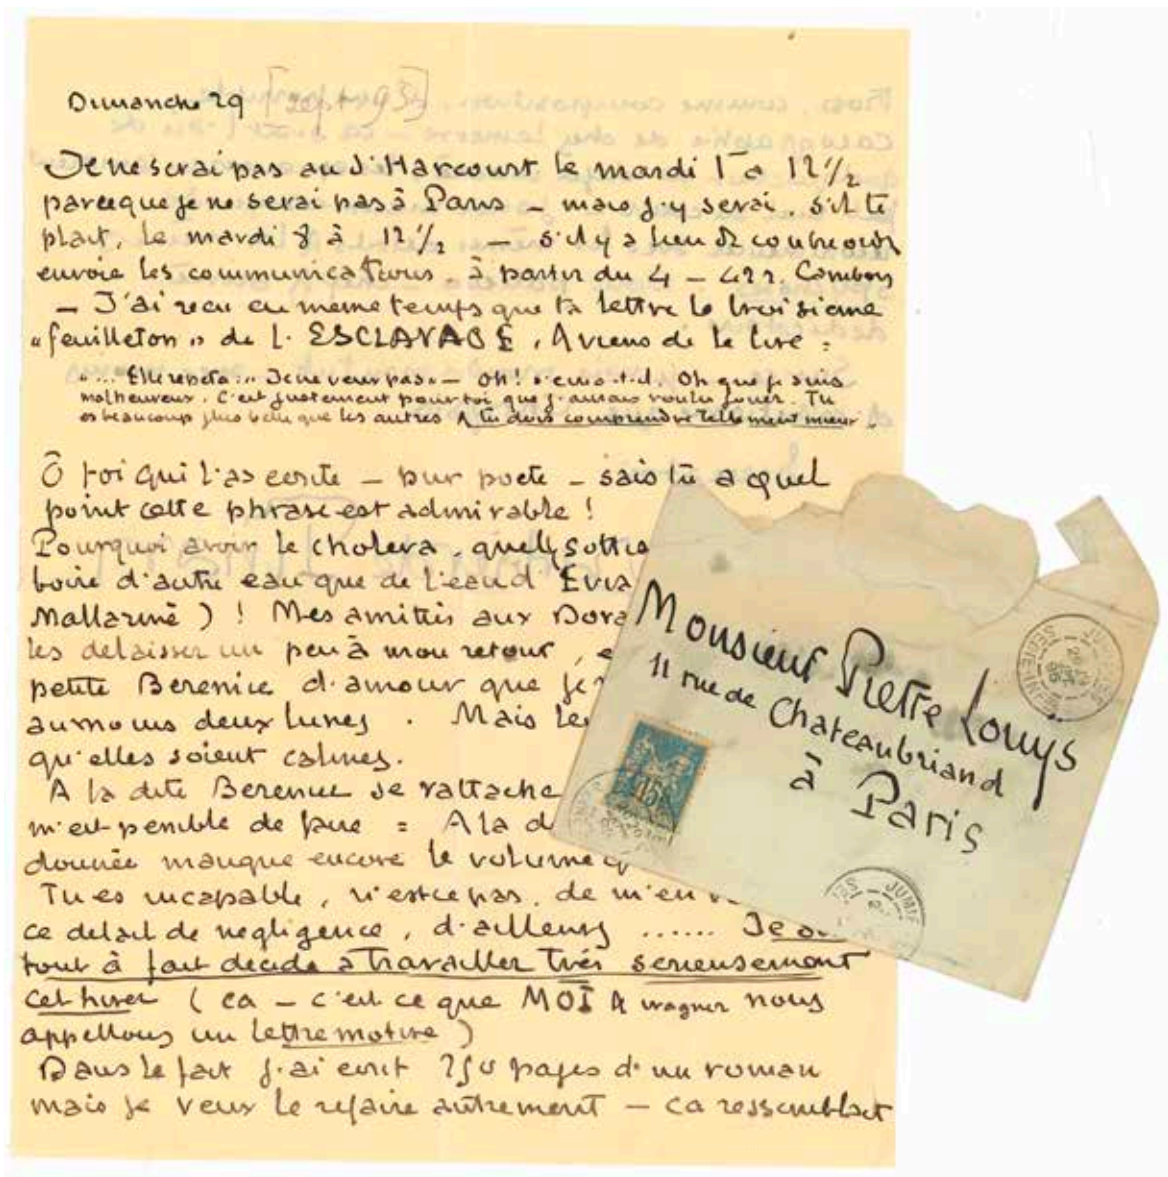 Dimanche 29 [sept 93]
Je ne serai pas au d'Harcourt le mardi 1 à 12 1/2
parceque je ne serai pas à Paris – mais j'y serai, s'il te
plait, le mardi 8 à 12 1/2 – s'il y a lieu de
envoie les communications à partir du 4 – Cambon
– J'ai reçu en meme temps que ta lettre le troisieme
"feuilleton" de l'ESCLAVAGE, & viens de le lire =
"... Elle repeta : "Je ne veux pas" – Oh! s'ecria-t-il. Oh que je suis
malheureux. C'est justement pour toi que j'aurais voulu jouer. Tu
es beaucoup plus belle que les autres & tu dois comprendre tellement mieux"
Ô toi qui l'as ecrite – pur poete – sais tu a quel
point cette phrase est admirable !
Pourquoi avoir le cholera, quelle sottis
boire d'autre eau que de l'eau d'Evia
Mallarmé ) ! Mes amitiés aux Dora
les delaisser un peu à mon retour, e
petite Berenice d'amour que je
au moins deux lunes. Mais les
qu'elles soient calines.
A la dite Berenice se rattache
m'est penible de faire = A la d
donnée manque encore le volume q
Tu es incapable, n'est ce pas, de m'en v
ce detail de negligence, d'ailleurs ...... Je su
tout à fait decidé à travailler très serieusement
cet hiver (ca – c'est ce que MOI & Wagner nous
appellons un lettre motive)
Dans le fait j'ai ecrit 250 pages d'un roman
mais je veux le refaire autrement – ca ressemblait
Monsieur Pierre Louÿs
11 rue de Chateaubriand
à Paris
15